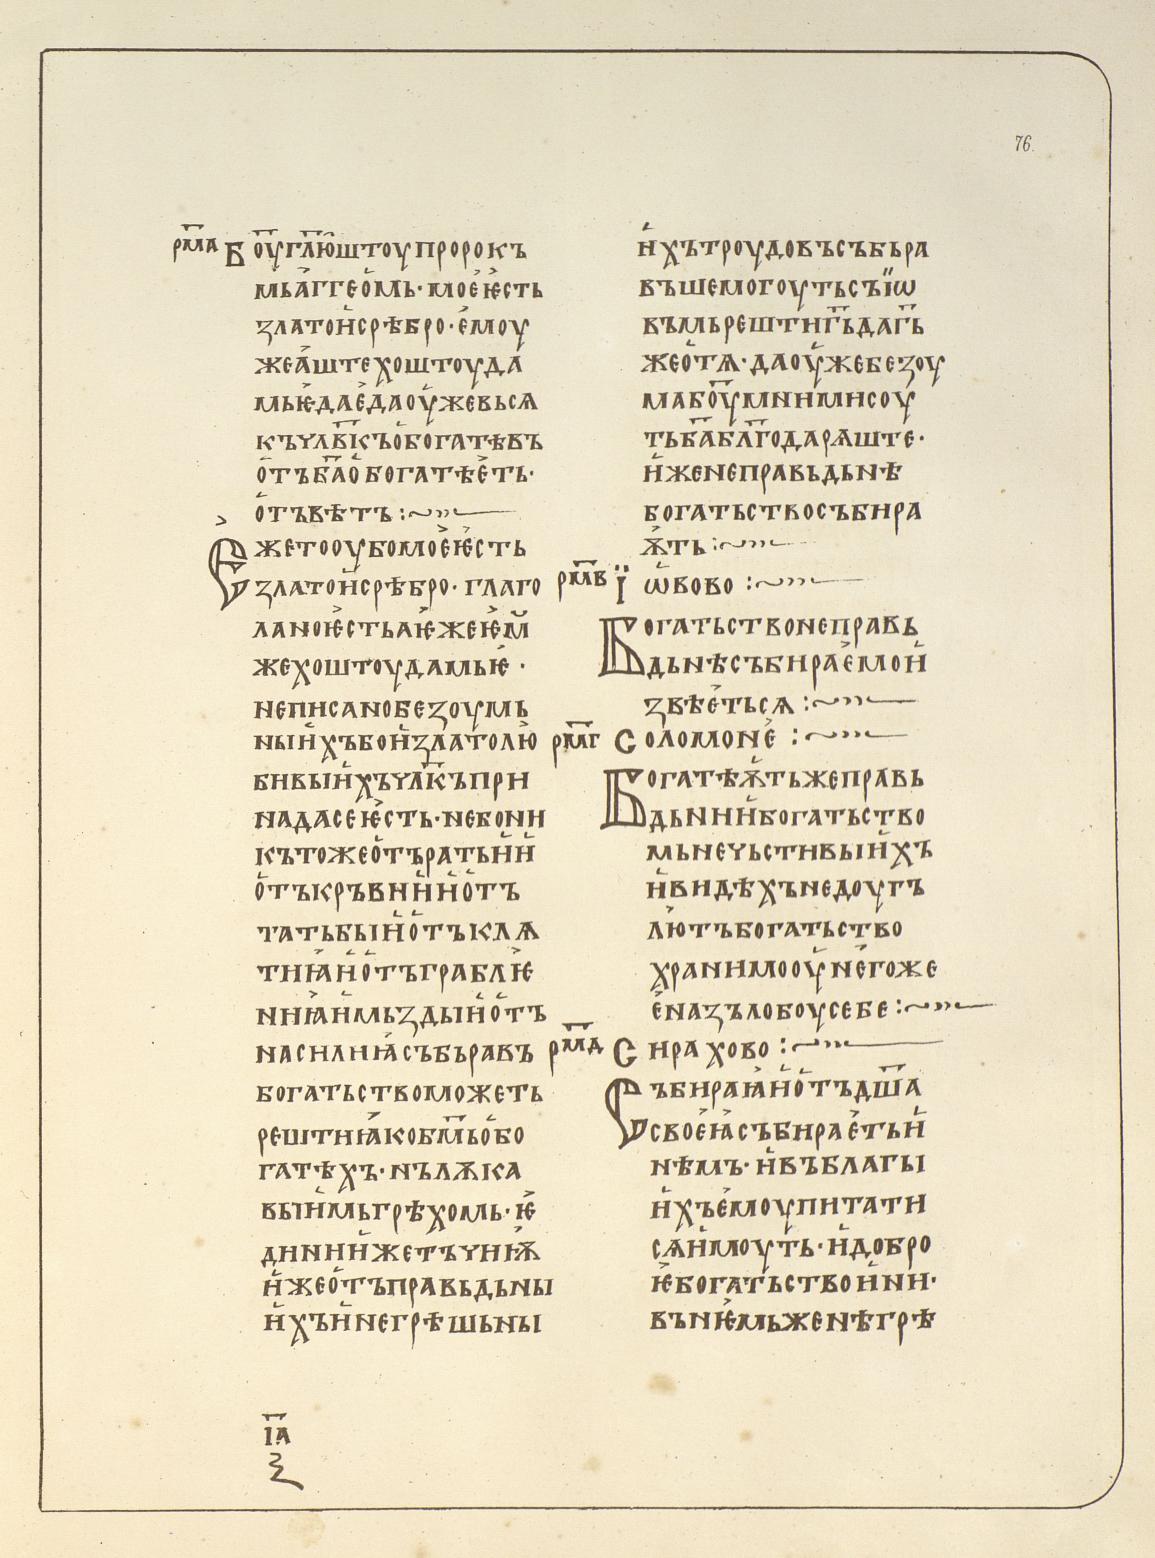 76.
р҃м҃а Б о҃у гл҃юштоу пророкъ
мь а҆ггео҆мь· мое҆ ѥ҆сть
ꙁлато и҆ срѣбро· е҆моу
же а҆ште хоштоу да
мь ѥ҆· да е҆да оу҆же вься
къ ѵл҃вк҃къ о҆богатѣвъ
о҆тъ б҃а о҆богатѣе҆ть·
о҆тъвѣтъ :~
Еже то оубо мое҆ ѥ҆сть
ꙁлато и҆ срѣбро· глаго
лано ѥ҆сть а҆ ѥ҆же ѥ҆м
же хоштоу дамь ѥ҆ ·
не писано беꙁоумь
ныи҆хъ бо и҆ ꙁлатолю
бивыи҆хъ ѵл҃къ при
нада се ѥ҆сть· не бо ни
къто же о҆тъ ратьи҆ и҆
о҆тъ кръвии҆ и҆ о҆тъ
татьбы и҆ о҆тъ клѧ
тиꙗ҆ и҆ о҆тъ граблѥ҆
ниꙗ҆ и҆ мьꙁды и҆ о҆тъ
насилиꙗ҆ събьравъ
богатьство можеть
решти ꙗ҆ко б҃мь о҆бо
гатѣхъ· нъ лѫка
выи҆мь грѣхомь· ѥ҆
дини и҆ же тъѵиѭ҆
и҆же о҆тъ правьдьны
и҆хъ и҆ не грѣшьны
и҆хъ троудовъ събьра
въше могоуть съ і҆ѡ
въмь решти г҃ь дА г҃ь
же о҆тѧ· да оу҆же беꙁоу
ма бо҃у мними соу
ть б҃а бл҃годарѧште·
и҆же неправьдьнѣ
богатьство събира
ѭ҆ть :~
р҃м҃в Ї ѡ҆вово :~
Богатьство неправь
дьнѣ събирае҆мо и҆
ꙁвѣе҆тьсѧ :~
р҃м҃г Соломоне҆ :~
Богатѣѭ҆ть же правь
дьнии҆ богатьство
мь неѵьстивыи҆хъ
и҆ видѣхъ недоугъ
лю҆тъ богатьство
хранимо оу҆ него же
е҆ на ꙁълобоу себе :~
р҃м҃д Сирахово :~
Събираꙗ҆и҆ о҆тъ д҃ша
своеꙗ҆ събирае҆ть и҆
нѣмъ· и҆ въ благы
и҆хъ е҆моу питати
сѧ и҆моуть· и҆ добро
ѥ҆ богатьство и҆ ни·
въ нѥ҆мь же нѣ грѣ
і҃а